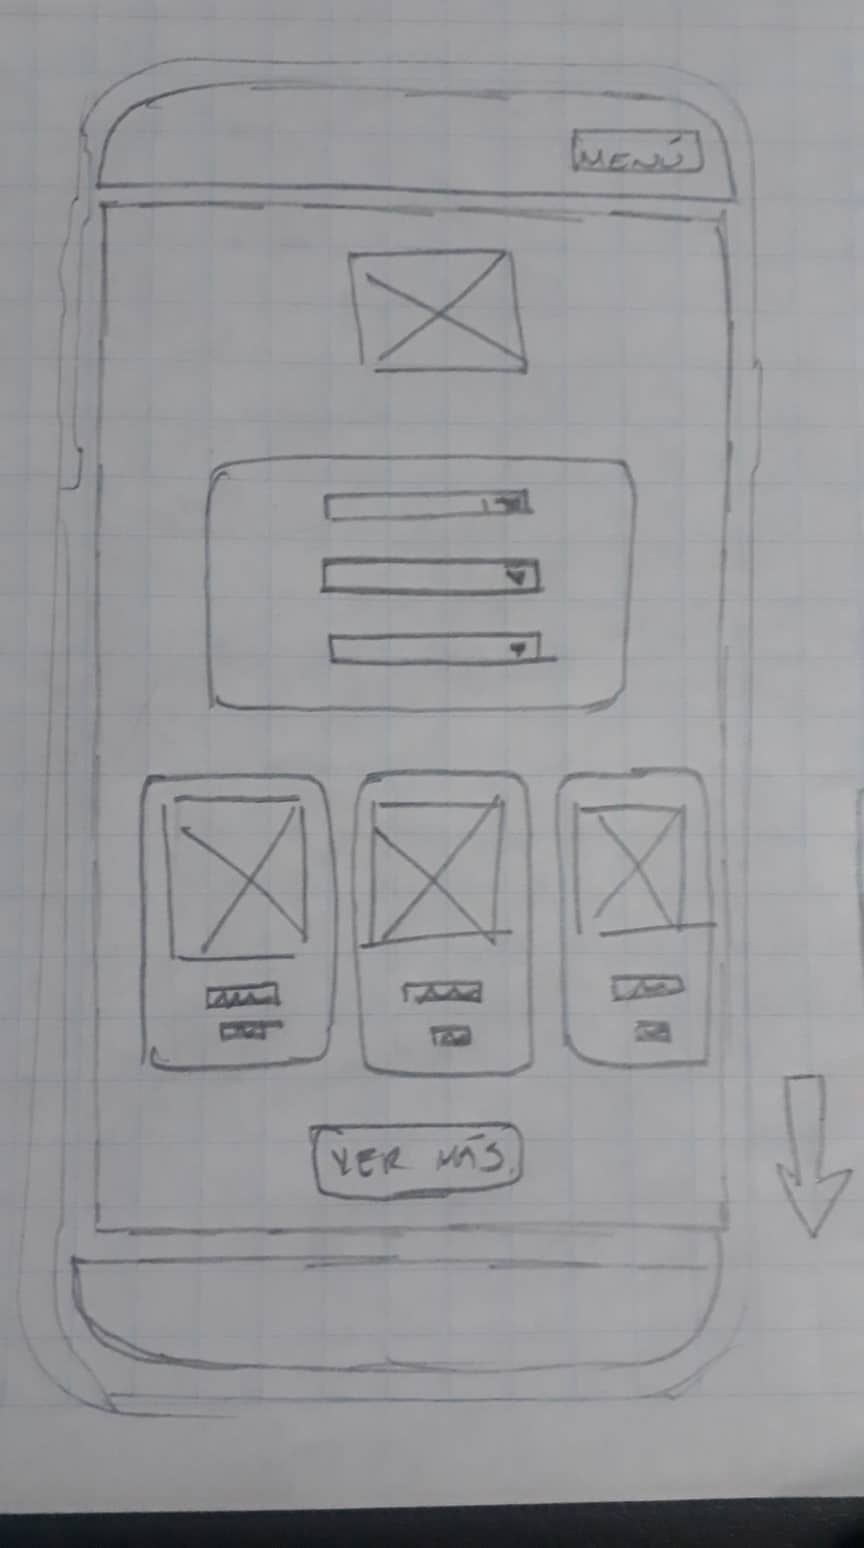 MENÚ
VER MÁS